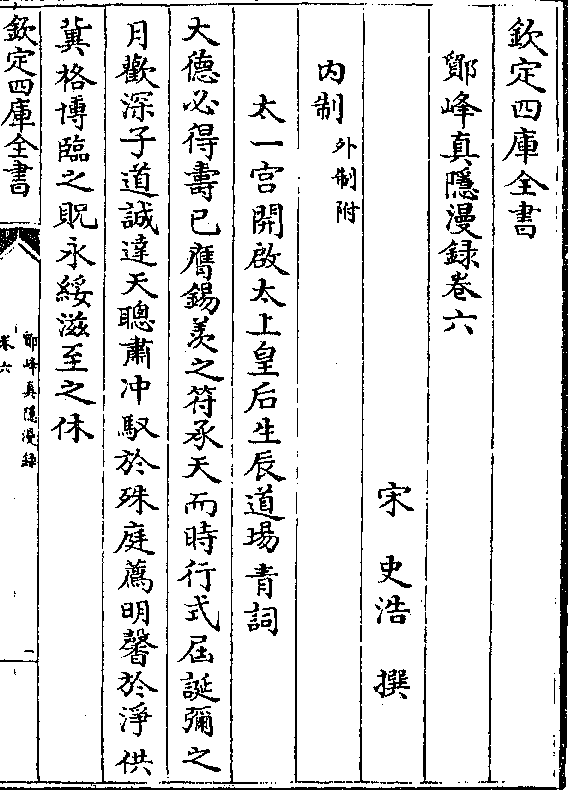 欽定四庫全書
鄮峰真隱漫録卷六
宋 史浩 撰
内制外制附
太一宫開啟太上皇后生辰道場青詞
大德必得壽已膺錫羡之符承天而時行式屆誕彌之
月歡深子道誠達天聰肅冲馭於殊庭薦明馨於淨供
冀格博臨之貺永綏滋至之休
欽定四庫全書
鄮峰真隱漫録
卷六
一